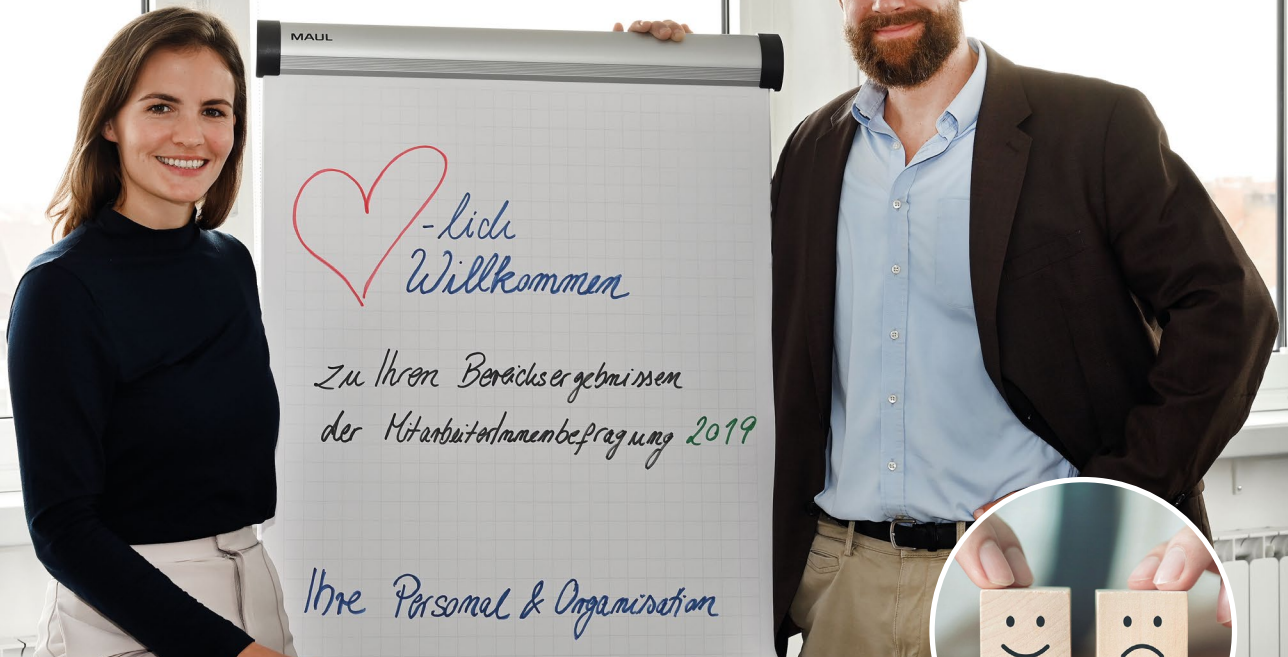 MAUL
-lich
Willkommen
zu Ihren Bereichsergebnissen
der MitarbeiterInnenbefragung 2019
Ihre Personal & Organisation